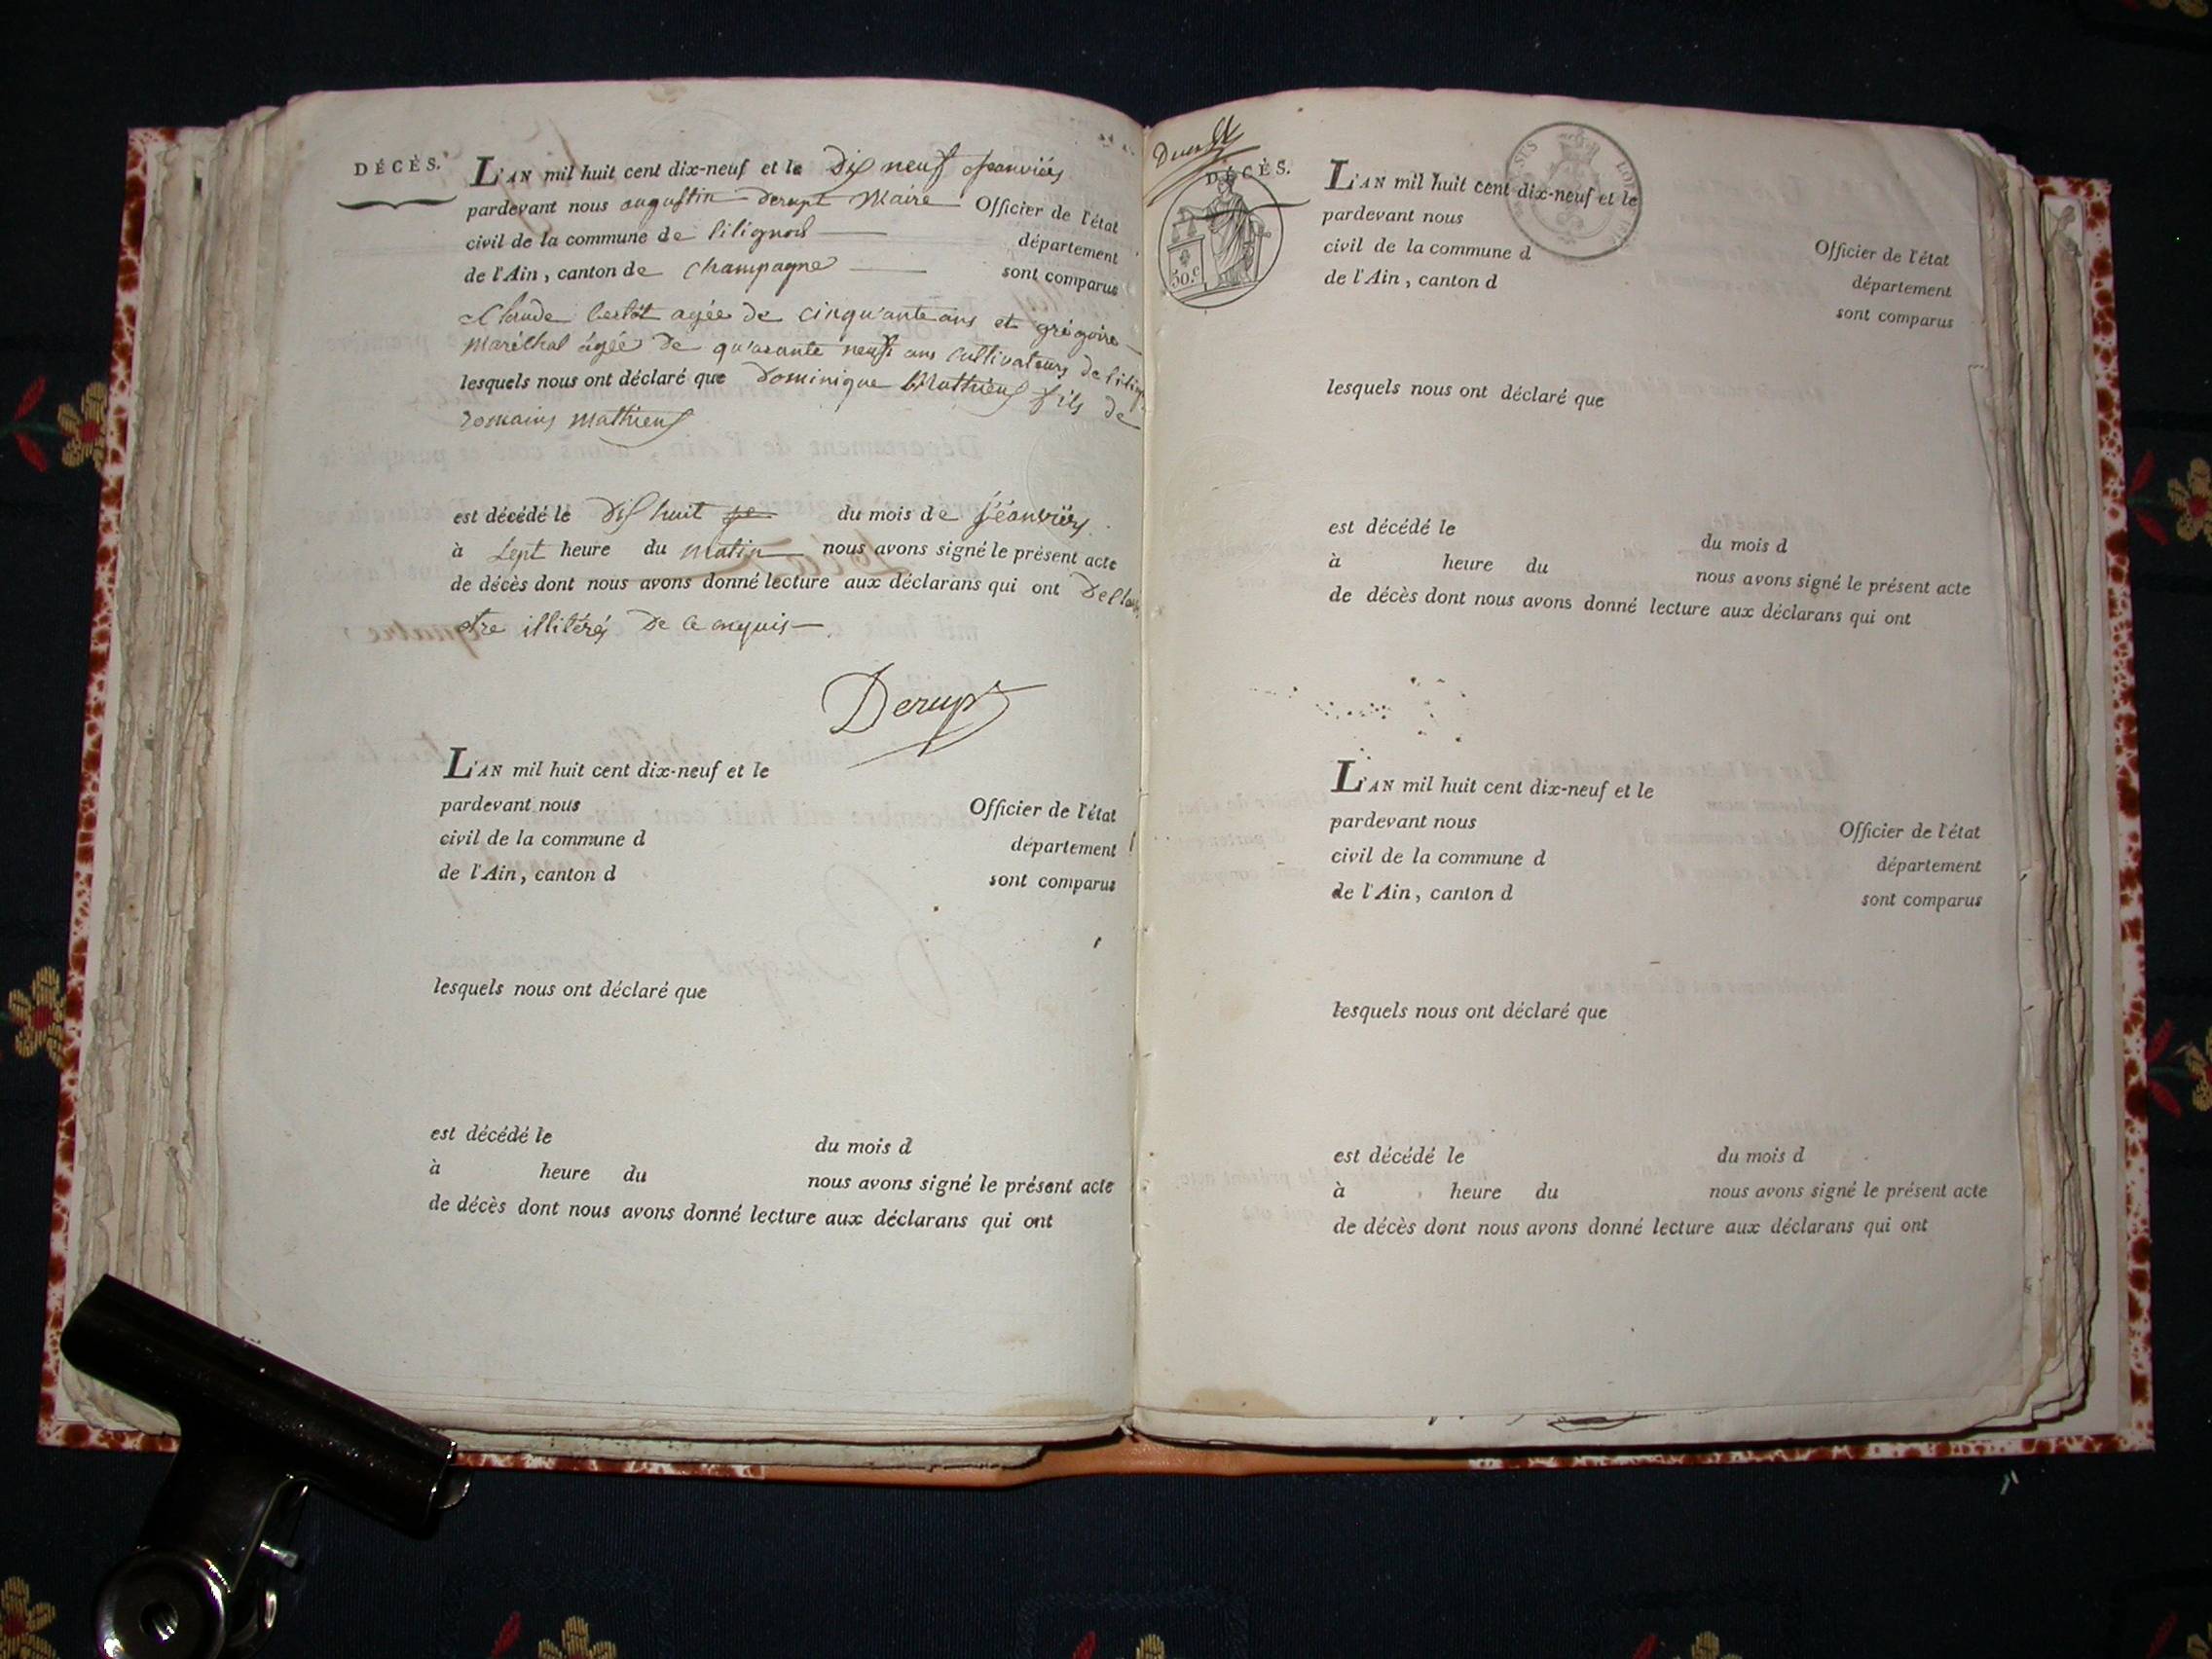 DÉCÈS.
L'AN mil huit cent dix-neuf et le Dix neuf Jeanviér
pardevant nous augustin Derupt Maire Officier de l'état
civil de la commune de lilignod département
de l'Ain, canton de Champagne sont comparus
Claude bertet agée de cinqu'ante ans et grégoire
maréthal agée de qu'arante neuf ans cultivateurs de
lesquels nous ont déclaré que Dominique Mathieu fils de
romains mathieu
est décédé le Dix huit du mois de jéanviér
à Sept heure du matin nous avons signé le présent acte
de décès dont nous avons donné lecture aux déclarans qui ont
etre illitérés De ce anquis
Derupt
L'AN mil huit cent dix-neuf et le
pardevant nous Officier de l'état
civil de la commune d département
de l'Ain, canton d sont comparus
lesquels nous ont déclaré que
est décédé le du mois d
à heure du nous avons signé le présent acte
de décès dont nous avons donné lecture aux déclarans qui ont
DÉCÈS.
50.c
L'AN mil huit cent dix-neuf et le
pardevant nous Officier de l'état
civil de la commune d département
de l'Ain, canton d sont comparus
lesquels nous ont déclaré que
est décédé le du mois d
à heure du nous avons signé le présent acte
de décès dont nous avons donné lecture aux déclarans qui ont
L'AN mil huit cent dix-neuf et le
pardevant nous Officier de l'état
civil de la commune d département
de l'Ain, canton d sont comparus
lesquels nous ont déclaré que
est décédé le du mois d
à heure du nous avons signé le présent acte
de décès dont nous avons donné lecture aux déclarans qui ont